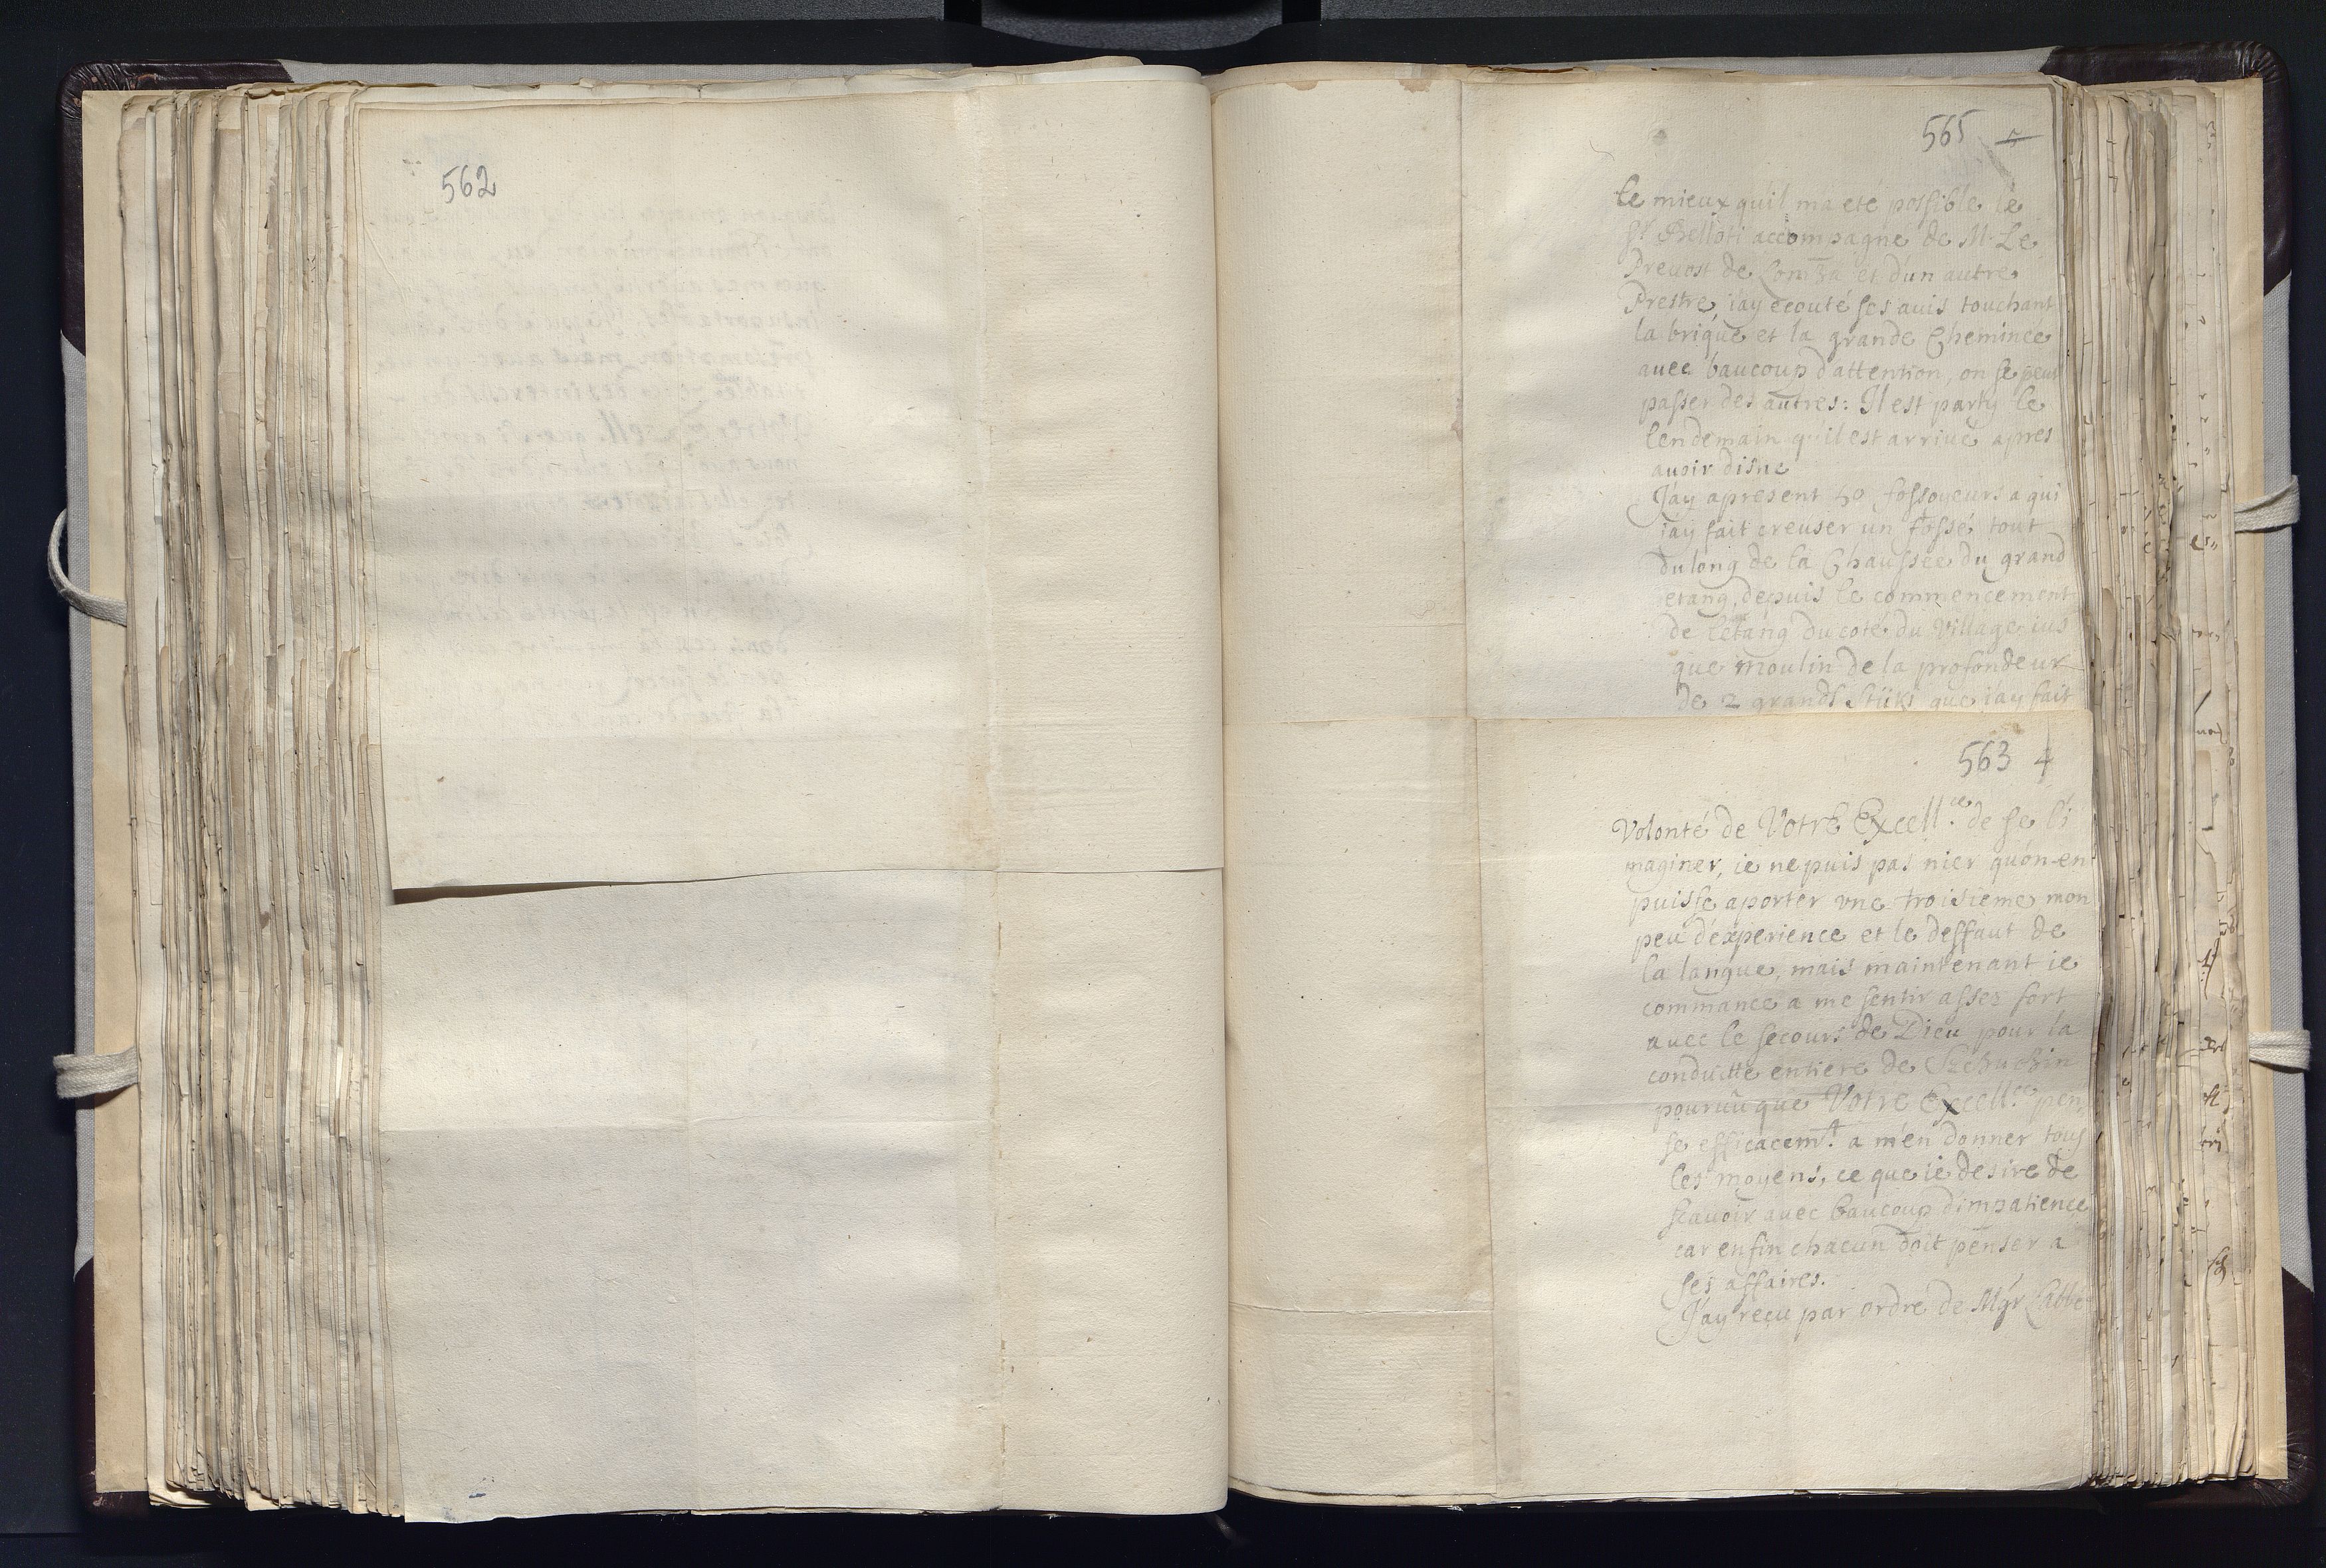 562
565 5
le mieux quil ma eté possible le
Sr Belloti accompagné de M. Le
Prevost de Lomza et d'un autre
Prestre, iay ecouté ses auis touchant
la brique et la grande Cheminée
auec baucoup d'attention, on se peut
passer des autres: Il est party le
lendemain qu'il est arriué apres
auoir disne
J'ay apresent 50 fossoyeurs a qui
i'ay fait creuser un fossé tout
du long de la Chaussée du grand
etang, depuis le commencement
de l'etang du coté du Village ius
que moulin de la profondeur
de 2 grands Stüks que i'ay fait
563 4
Volonté de Votre Excell.ce de se l'i
maginer, ie ne puis pas nier qu'on en
puisse aporter vne troisieme mon
peu d'experience et le deffaut de
la langue, mais maintenant ie
commance a me sentir asses fort
auec le secours de Dieu pour la
conduitte entiere de
pouruüque Votre Excell.ce pen
se efficacem.t a m'en donner tous
les moyens, ce que ie desire de
scauoir auec baucoup d'impatience
car enfin chacun doit penser a
ses affaires.
J'ay reçu par ordre de Mgr l'abbé